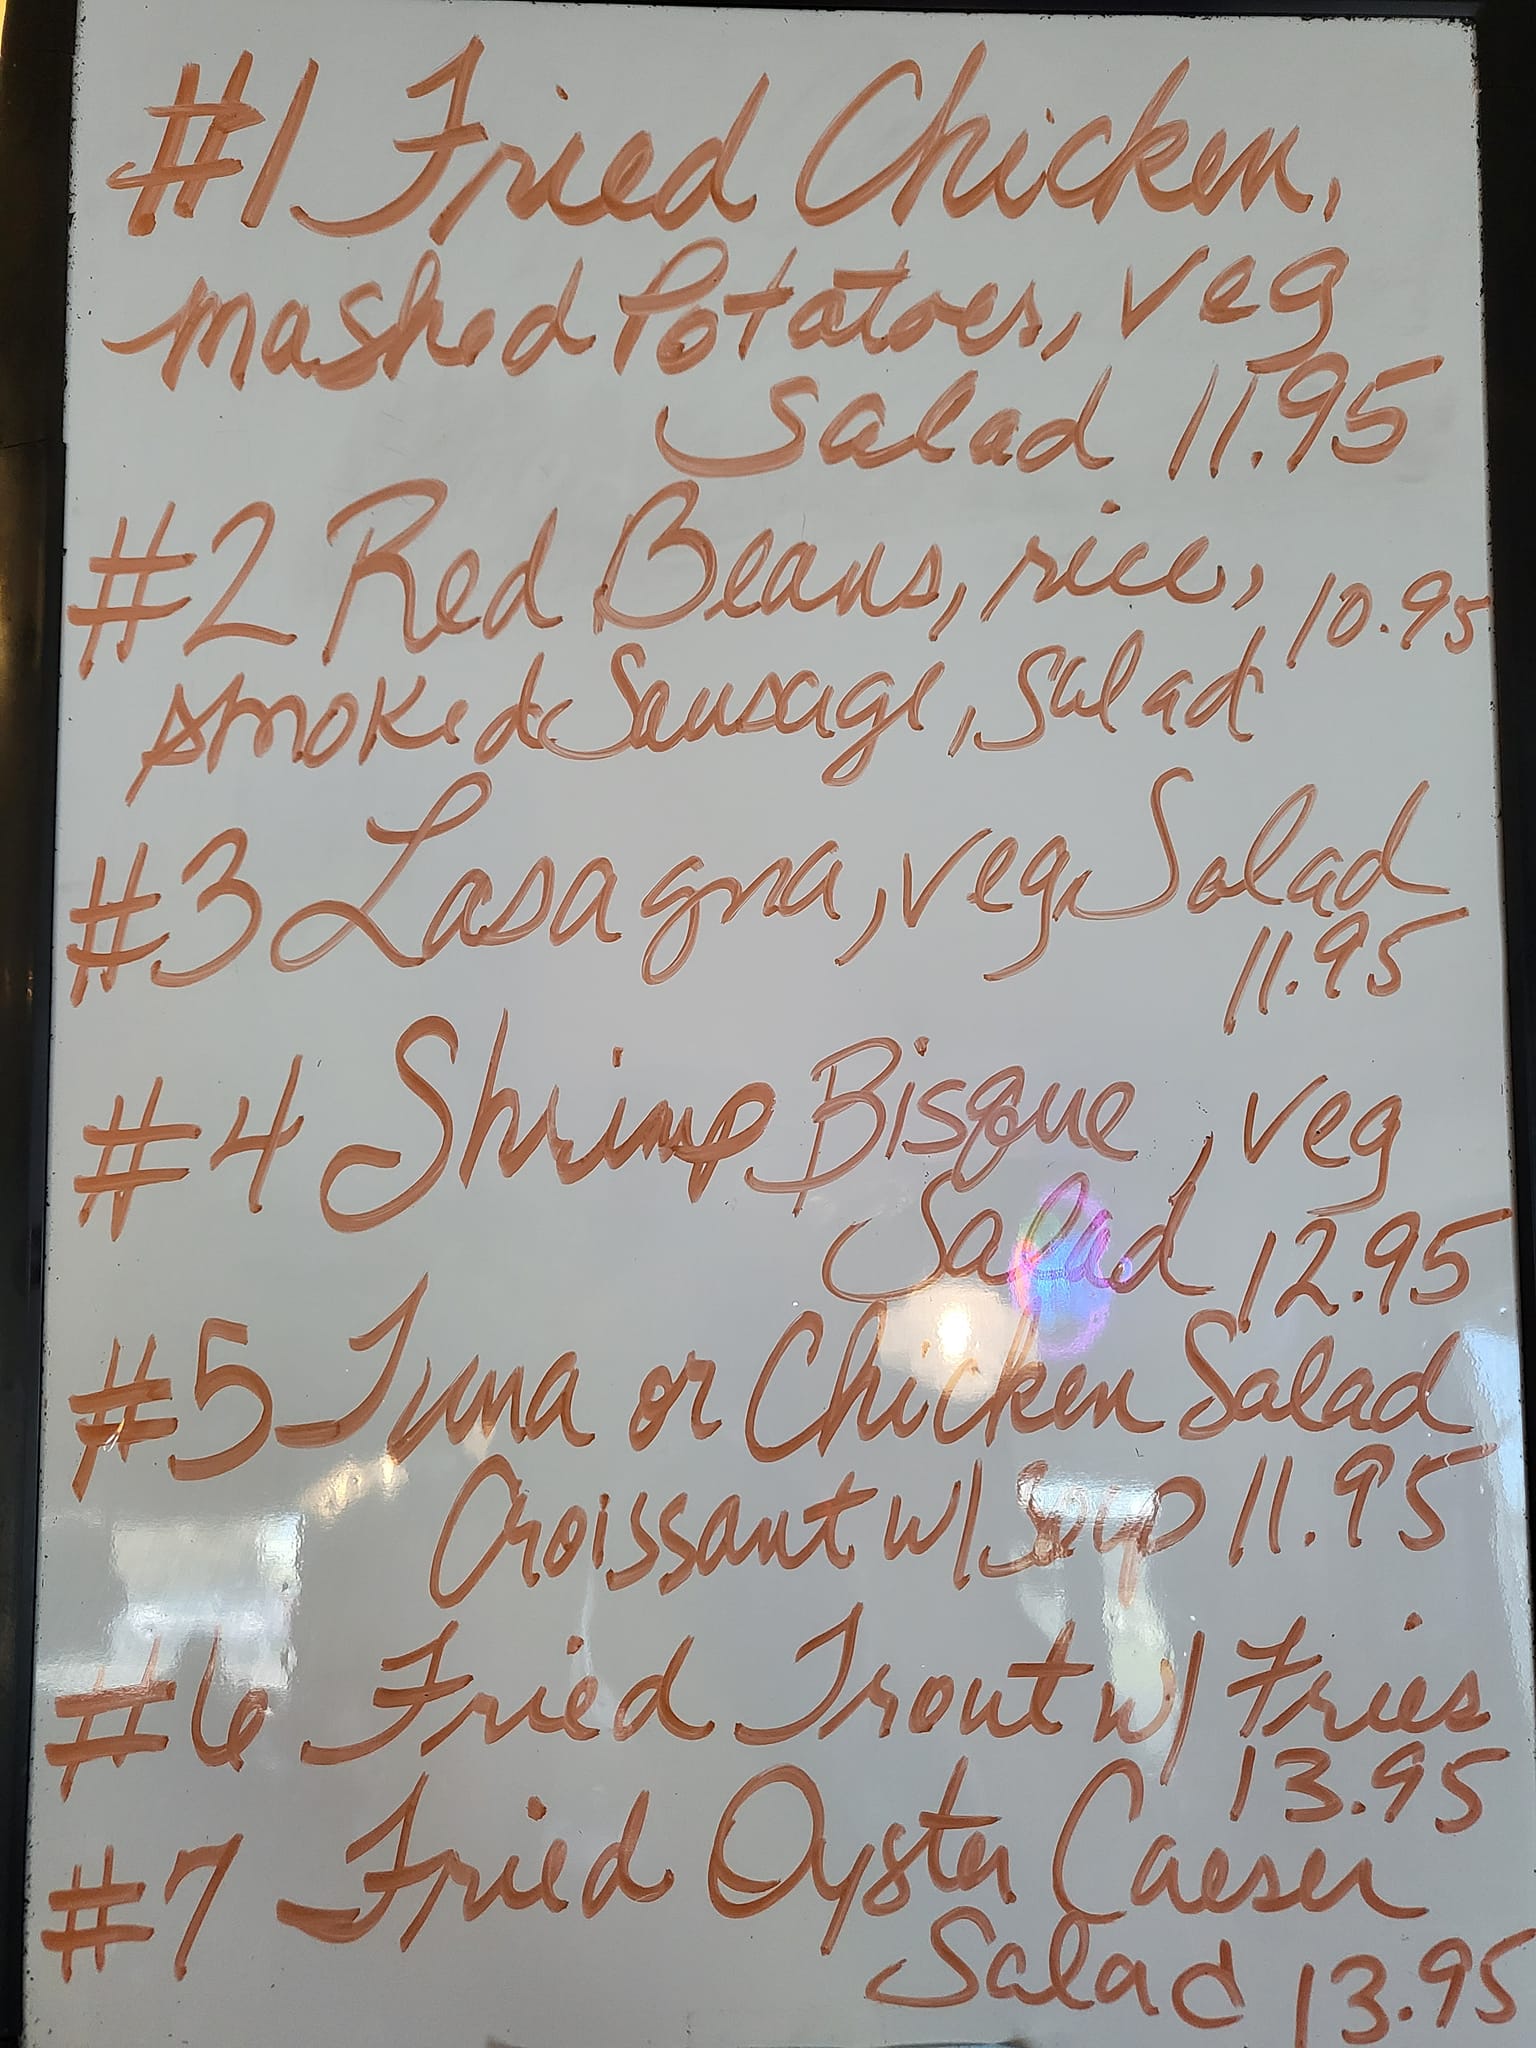 #1 Fried Chicken,
mashed Potatoes, veg
Salad 11.95
#2 Red Beans, rice, 10.95
smoked Sausage, Salad
#3 Lasagna, veg, Salad
11.95
#4 Shrimp Bisque, veg
Salad 12.95
#5 Tuna or Chicken Salad
Croissant w/ Soup 11.95
#6 Fried Trout w/ Fries
13.95
#7 Fried Oyster Caeser
Salad 13.95